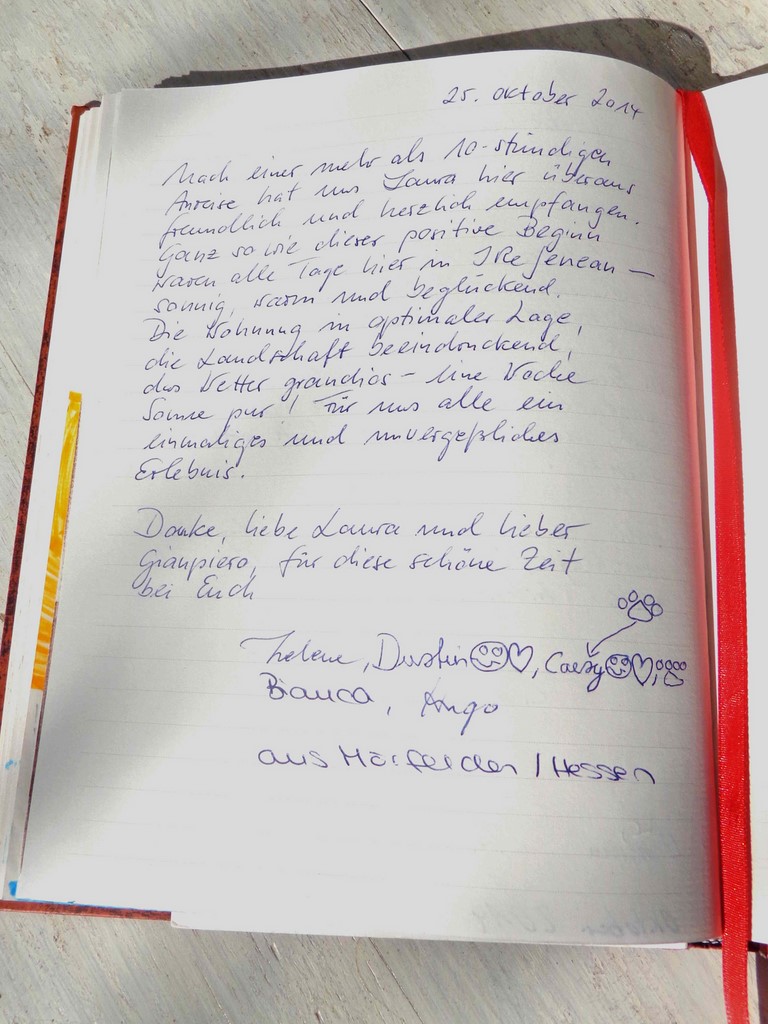 25. Oktober 2014
Nach einer mehr als 10-stündigen
Anreise hat uns Laura hier überaus
freundlich und herzlich empfangen.
Ganz so wie dieser positive Beginn
waren alle Tage hier in –
sonnig, warm und beglückend.
Die Wohnung in optimaler Lage,
die Landschaft beeindruckend,
das Wetter grandios – eine Woche
Sonne pur! Für uns alle ein
einmaliges und unvergeßliches
Erlebnis.
Danke, liebe Laura und lieber
Gianpiero, für diese schöne Zeit
bei Euch
Helene, Dustin, ,
Bianca, Ingo
aus Mörfelden / Hessen